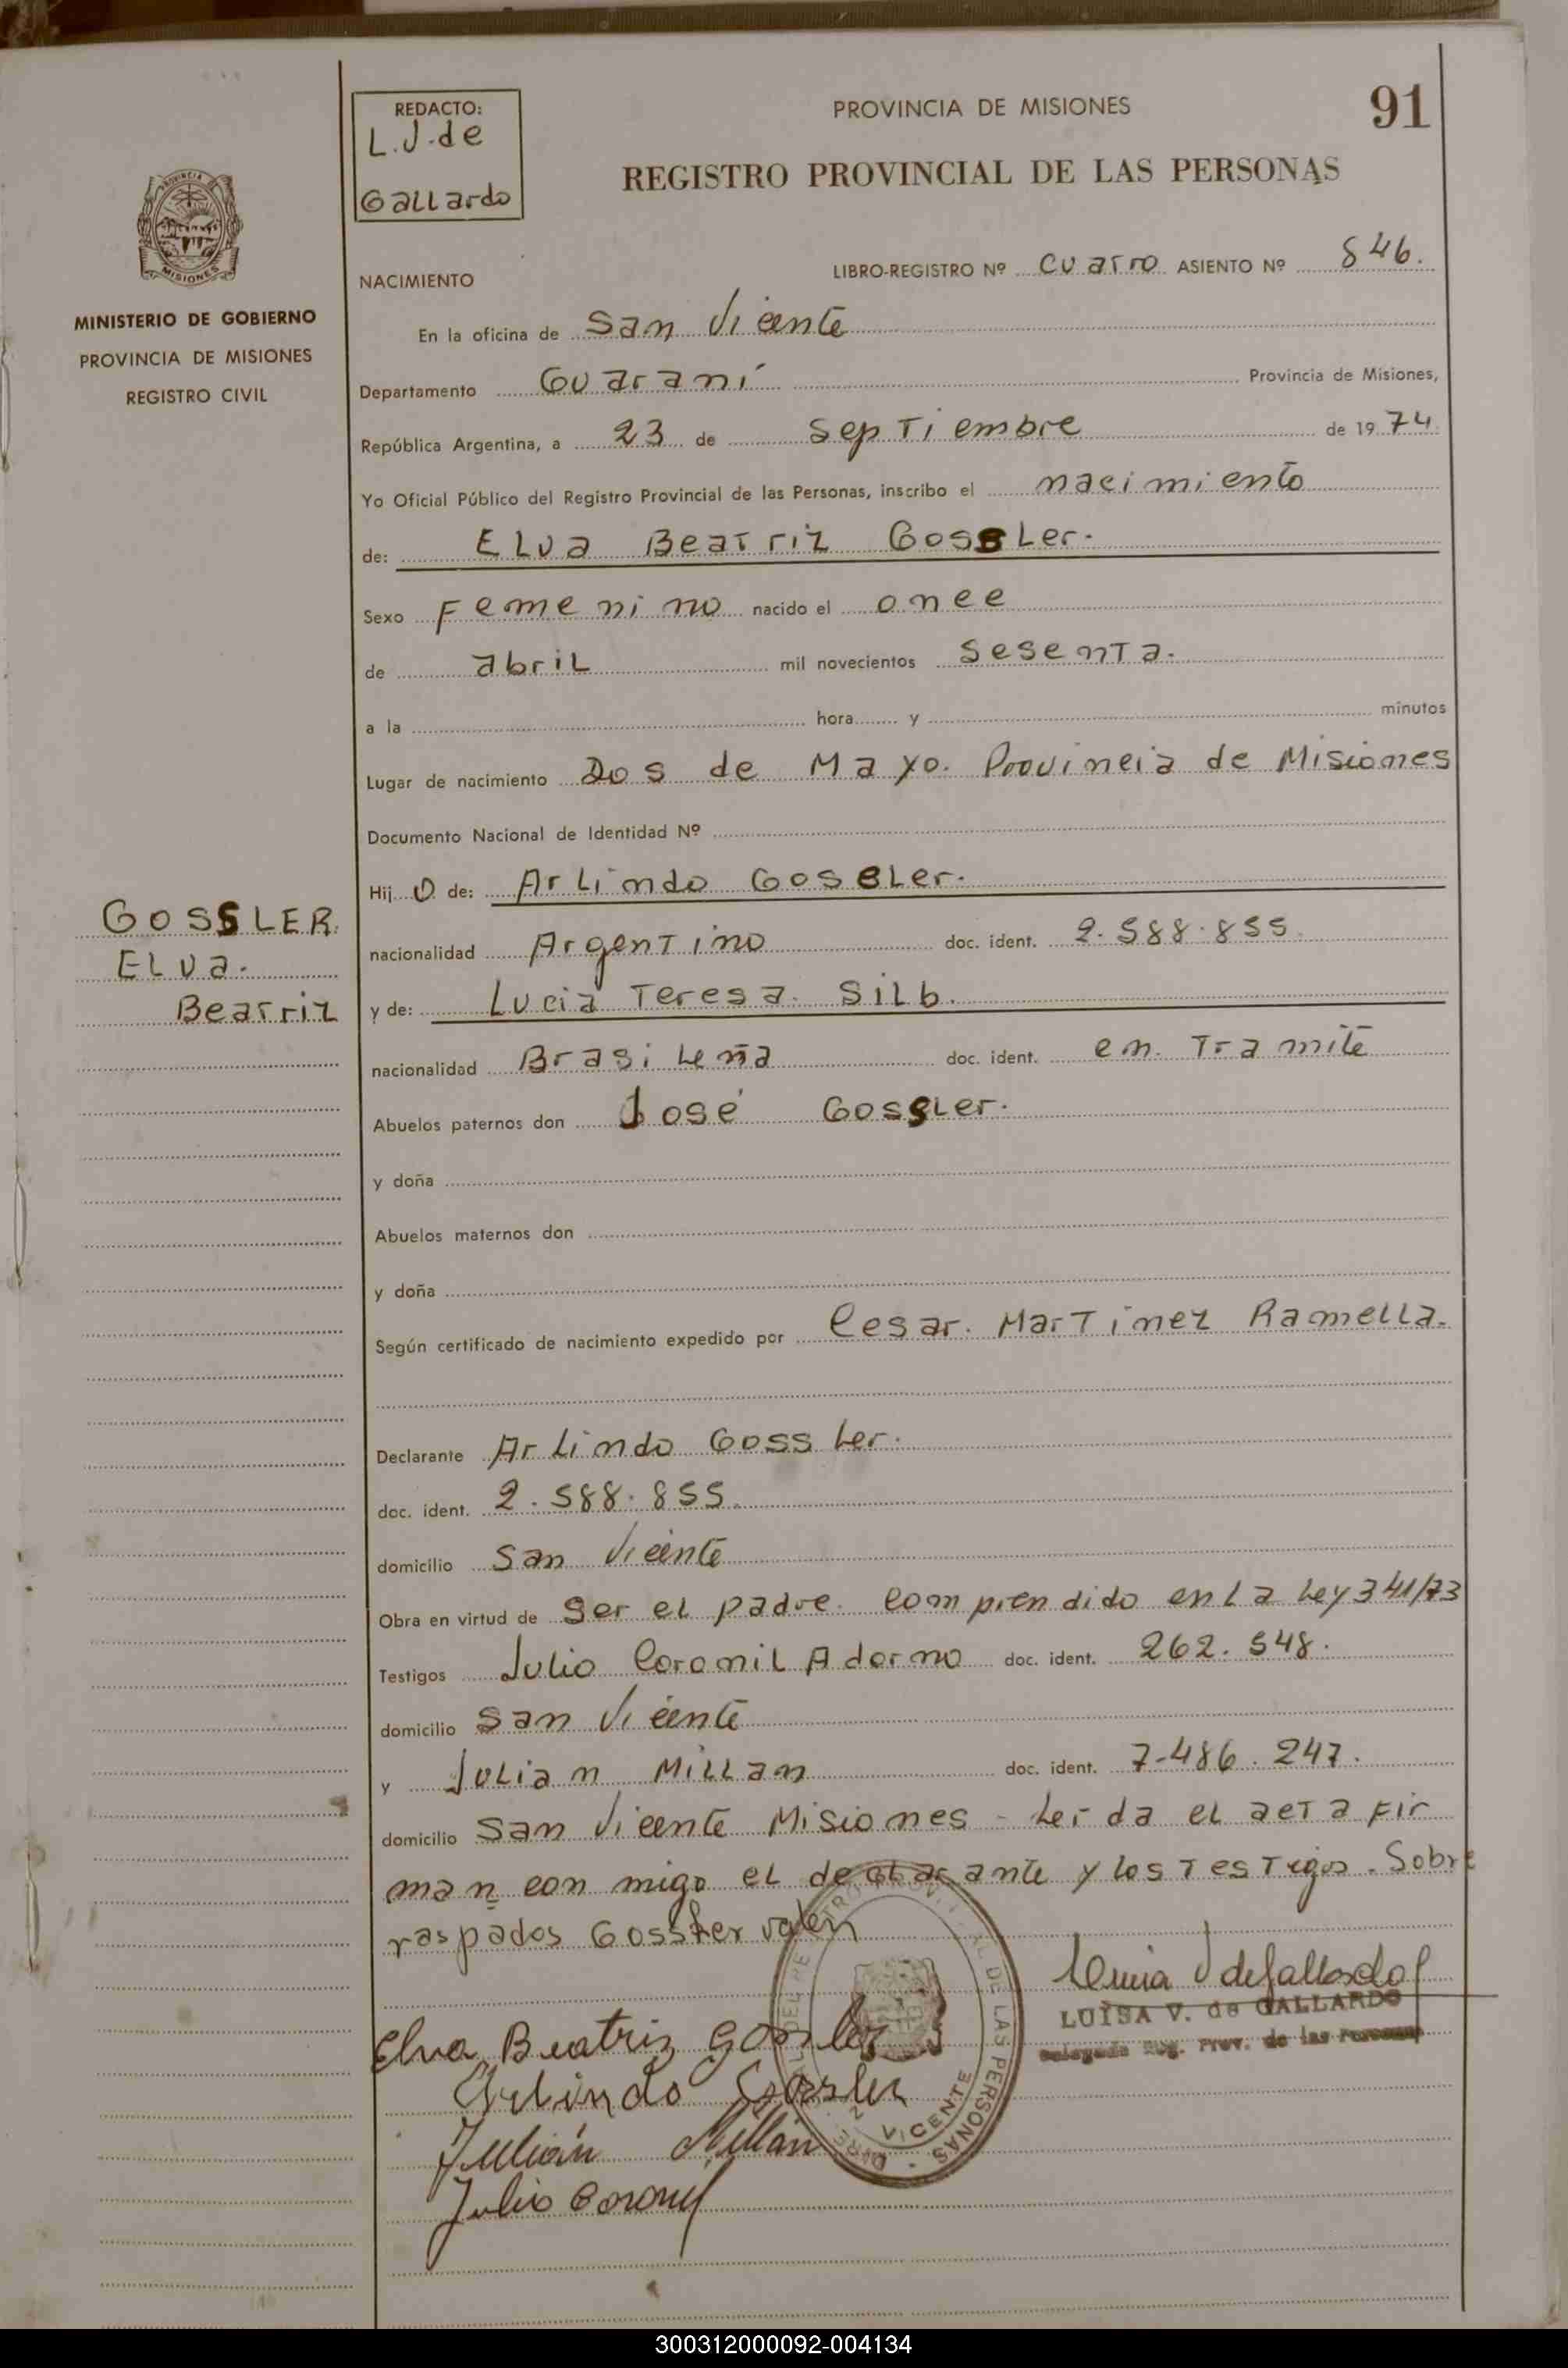 91
REDACTO:
L.J.de
Gallardo
PROVINCIA DE MISIONES
REGISTRO PROVINCIAL DE LAS PERSONAS
MISIONES
MINISTERIO DE GOBIERNO
PROVINCIA DE MISIONES
REGISTRO CIVIL
NACIMIENTO
LIBRO-REGISTRO Nº cuatro ASIENTO Nº 846.
En la oficina de San Vicente
Departamento Guaraní Provincia de Misiones,
República Argentina, a 23 de septiembre de 1974
Yo Oficial Público del Registro Provincial de las Personas, inscribo el nacimiento
de: Elva Beatriz Gossler.
Sexo Femenino nacido el once
de abril mil novecientos sesenta.
a la hora y minutos
Lugar de nacimiento Dos de Mayo. Provincia de Misiones
Documento Nacional de Identidad Nº
Hij a de: Arlindo Gossler.
nacionalidad Argentino doc. ident. 2.588.855.
y de: Lucia Teresa Silb.
nacionalidad Brasileña doc. ident. en Tramite
Abuelos paternos don José Gossler.
y doña
Abuelos maternos don
y doña
Según certificado de nacimiento expedido por Cesar. Martinez Ramella.
GOSSLER.
Elva.
Beatriz
Declarante Arlindo Gossler.
doc. ident. 2.588.855.
domicilio San Vicente
Obra en virtud de ser el padre. comprendido en la Ley 341/73
Testigos Julio Coronil Adorno doc. ident. 262.548.
domicilio San Vicente
y Julian Millan doc. ident. 7-486.247.
domicilio San Vicente Misiones - Leída el acta fir
man con migo el declarante y los Testigos. Sobre
raspados Gossler valen
Luisa V de Gallardo
LUISA V. de GALLARDO
Delegada Reg. Prov. de las Personas
Elva Beatriz Gossler
Arlindo Gossler
Julián Millán
Julio Coronil
VICENTE
DE LAS PERSONAS
300312000092-004134